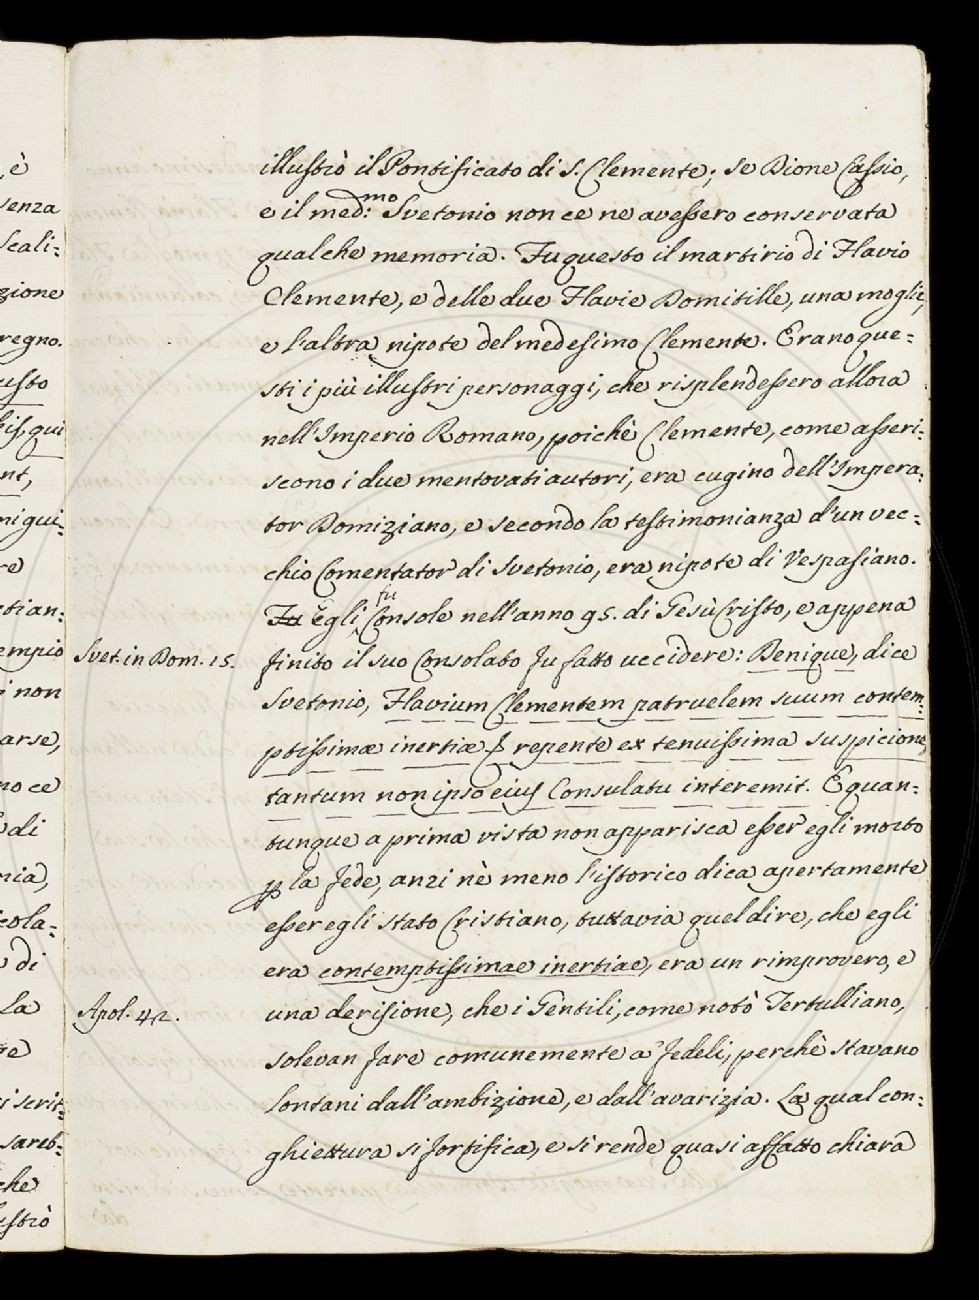 è
senza
scali:
zione
regno.
usto
bis, qui
nt,
ni qui:
re
stian:
empio
i non
arse,
no ce
di
nia,
cola:
di
La
re
si scrit:
sareb:
che
ustrò
illustrò il Pontificato di S. Clemente; se Dione Cassio,
e il med:mo Svetonio non ce ne avessero conservata
qualche memoria. Fu questo il martirio di Flavio
Clemente, e delle due Flavie Domitille, una moglie,
e l'altra nipote del medesimo Clemente. Erano que:
sti i più illustri personaggi, che risplendessero allora
nell'Imperio Romano, poichè Clemente, come asseri:
scono i due mentovati autori, era cugino dell'Impera:
tor Domiziano, e secondo la testimonianza d'un vec:
chio Comentator di Svetonio, era nipote di Vespasiano.
Fu Egli fu Console nell'anno 95. di Gesù Cristo, e appena
Svet. in Dom. 15.
finito il suo Consolato fu fatto uccidere: Denique, dice
Svetonio, Flavium Clementem patruelem suum contem:
ptissimæ inertiæ repente ex tenuissima suspicione,
tantum non ipso eius Consulatu interemit. E quan:
tunque a prima vista non apparisca esser egli morto
p la fede, anzi nè meno l'istorico dica apertamente
esser egli stato Cristiano, tuttavia quel dire, che egli
era contemptissimae inertiae, era un rimprovero, e
Apol. 42.
una derisione, che i Gentili, come notò Tertulliano,
solevan fare comunemente a' fedeli, perchè stavano
lontani dall'ambizione, e dall'avarizia. La qual con:
ghiettura si fortifica, e si rende quasi affatto chiara